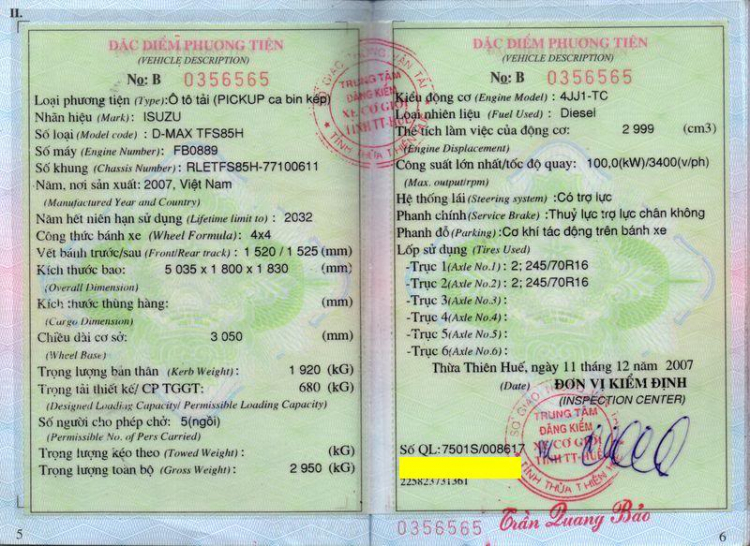 II.
ĐẶC ĐIỂM PHƯƠNG TIỆN
(VEHICLE DESCRIPTION)
No: B 0356565
Loại phương tiện (Type):Ô tô tải (PICKUP ca bin kép)
Nhãn hiệu (Mark): ISUZU
Số loại (Model code) : D-MAX TFS85H
Số máy (Engine Number): FB0889
Số khung (Chassis Number): RLETFS85H-77100611
Năm, nơi sản xuất: 2007, Việt Nam
(Manufactured Year and Country)
Năm hết niên hạn sử dụng (Lifetime limit to) : 2032
Công thức bánh xe (Wheel Formula): 4x4
Vết bánh trước/sau (Front/Rear track) : 1 520 / 1 525 (mm)
Kích thước bao: 5 035 x 1 800 x 1 830 (mm)
(Overall Dimension)
Kích thước thùng hàng: (mm)
(Cargo Dimension)
Chiều dài cơ sở: 3 050 (mm)
(Wheel Base)
Trọng lượng bản thân (Kerb Weight): 1 920 (kG)
Trọng tải thiết kế/ CP TGGT: 680 (kG)
(Designed Loading Capacity/ Permissible Loading Capacity)
Số người cho phép chở: 5(ngồi)
(Permissible No. of Pers Carried)
Trọng lượng kéo theo (Towed Weight) : (kG)
Trọng lượng toàn bộ (Gross Weight) : 2 950 (kG)
5
ĐẶC ĐIỂM PHƯƠNG TIỆN
(VEHICLE DESCRIPTION)
No: B 0356565
Kiểu động cơ (Engine Model) : 4JJ1-TC
Loại nhiên liệu (Fuel Used) : Diesel
Thể tích làm việc của động cơ: 2 999 (cm3)
(Engine Displacement)
Công suất lớn nhất/tốc độ quay: 100,0(kW)/3400(v/ph)
(Max. output/rpm)
Hệ thống lái (Steering system) :Có trợ lực
Phanh chính(Service Brake) :Thuỷ lực trợ lực chân không
Phanh đỗ (Parking) :Cơ khí tác động trên bánh xe
Lốp sử dụng (Tires Used)
-Trục 1(Axle No.1) : 2; 245/70R16
-Trục 2(Axle No.2) : 2; 245/70R16
-Trục 3(Axle No.3) :
-Trục 4(Axle No.4) :
-Trục 5(Axle No.5) :
-Trục 6(Axle No.6) :
Thừa Thiên Huế, ngày 11 tháng 12 năm 2007
(Date) ĐƠN VỊ KIỂM ĐỊNH
(INSPECTION CENTER)
TRUNG TÂM
ĐĂNG KIỂM
XE CƠ GIỚI
TỈNH TT-HUẾ
Số QL:7501S/008617
225823731361
0356565
Trần Quang Bảo
6